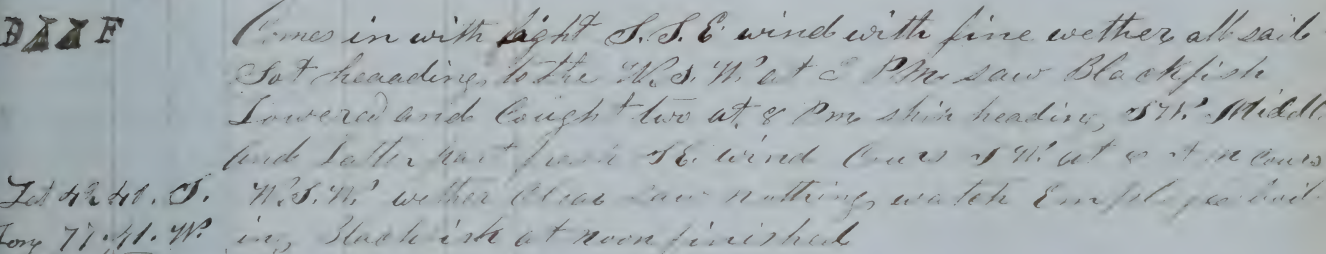 B F Comes in with light S.S.E wind with fine wether all sail
Sot heaading to the W.S.W. at 2 PM saw Blackfish
Lowered and Cought two at 8 Pm ship heading SW. Middle
and latter part fresh SE. wind Cours S W. at 8 A M cours
Lat 42 40. S. W.S.W. wether Clear saw nothing watch Employed boil
Long 77.41. W. ing Blackfish at noon finished